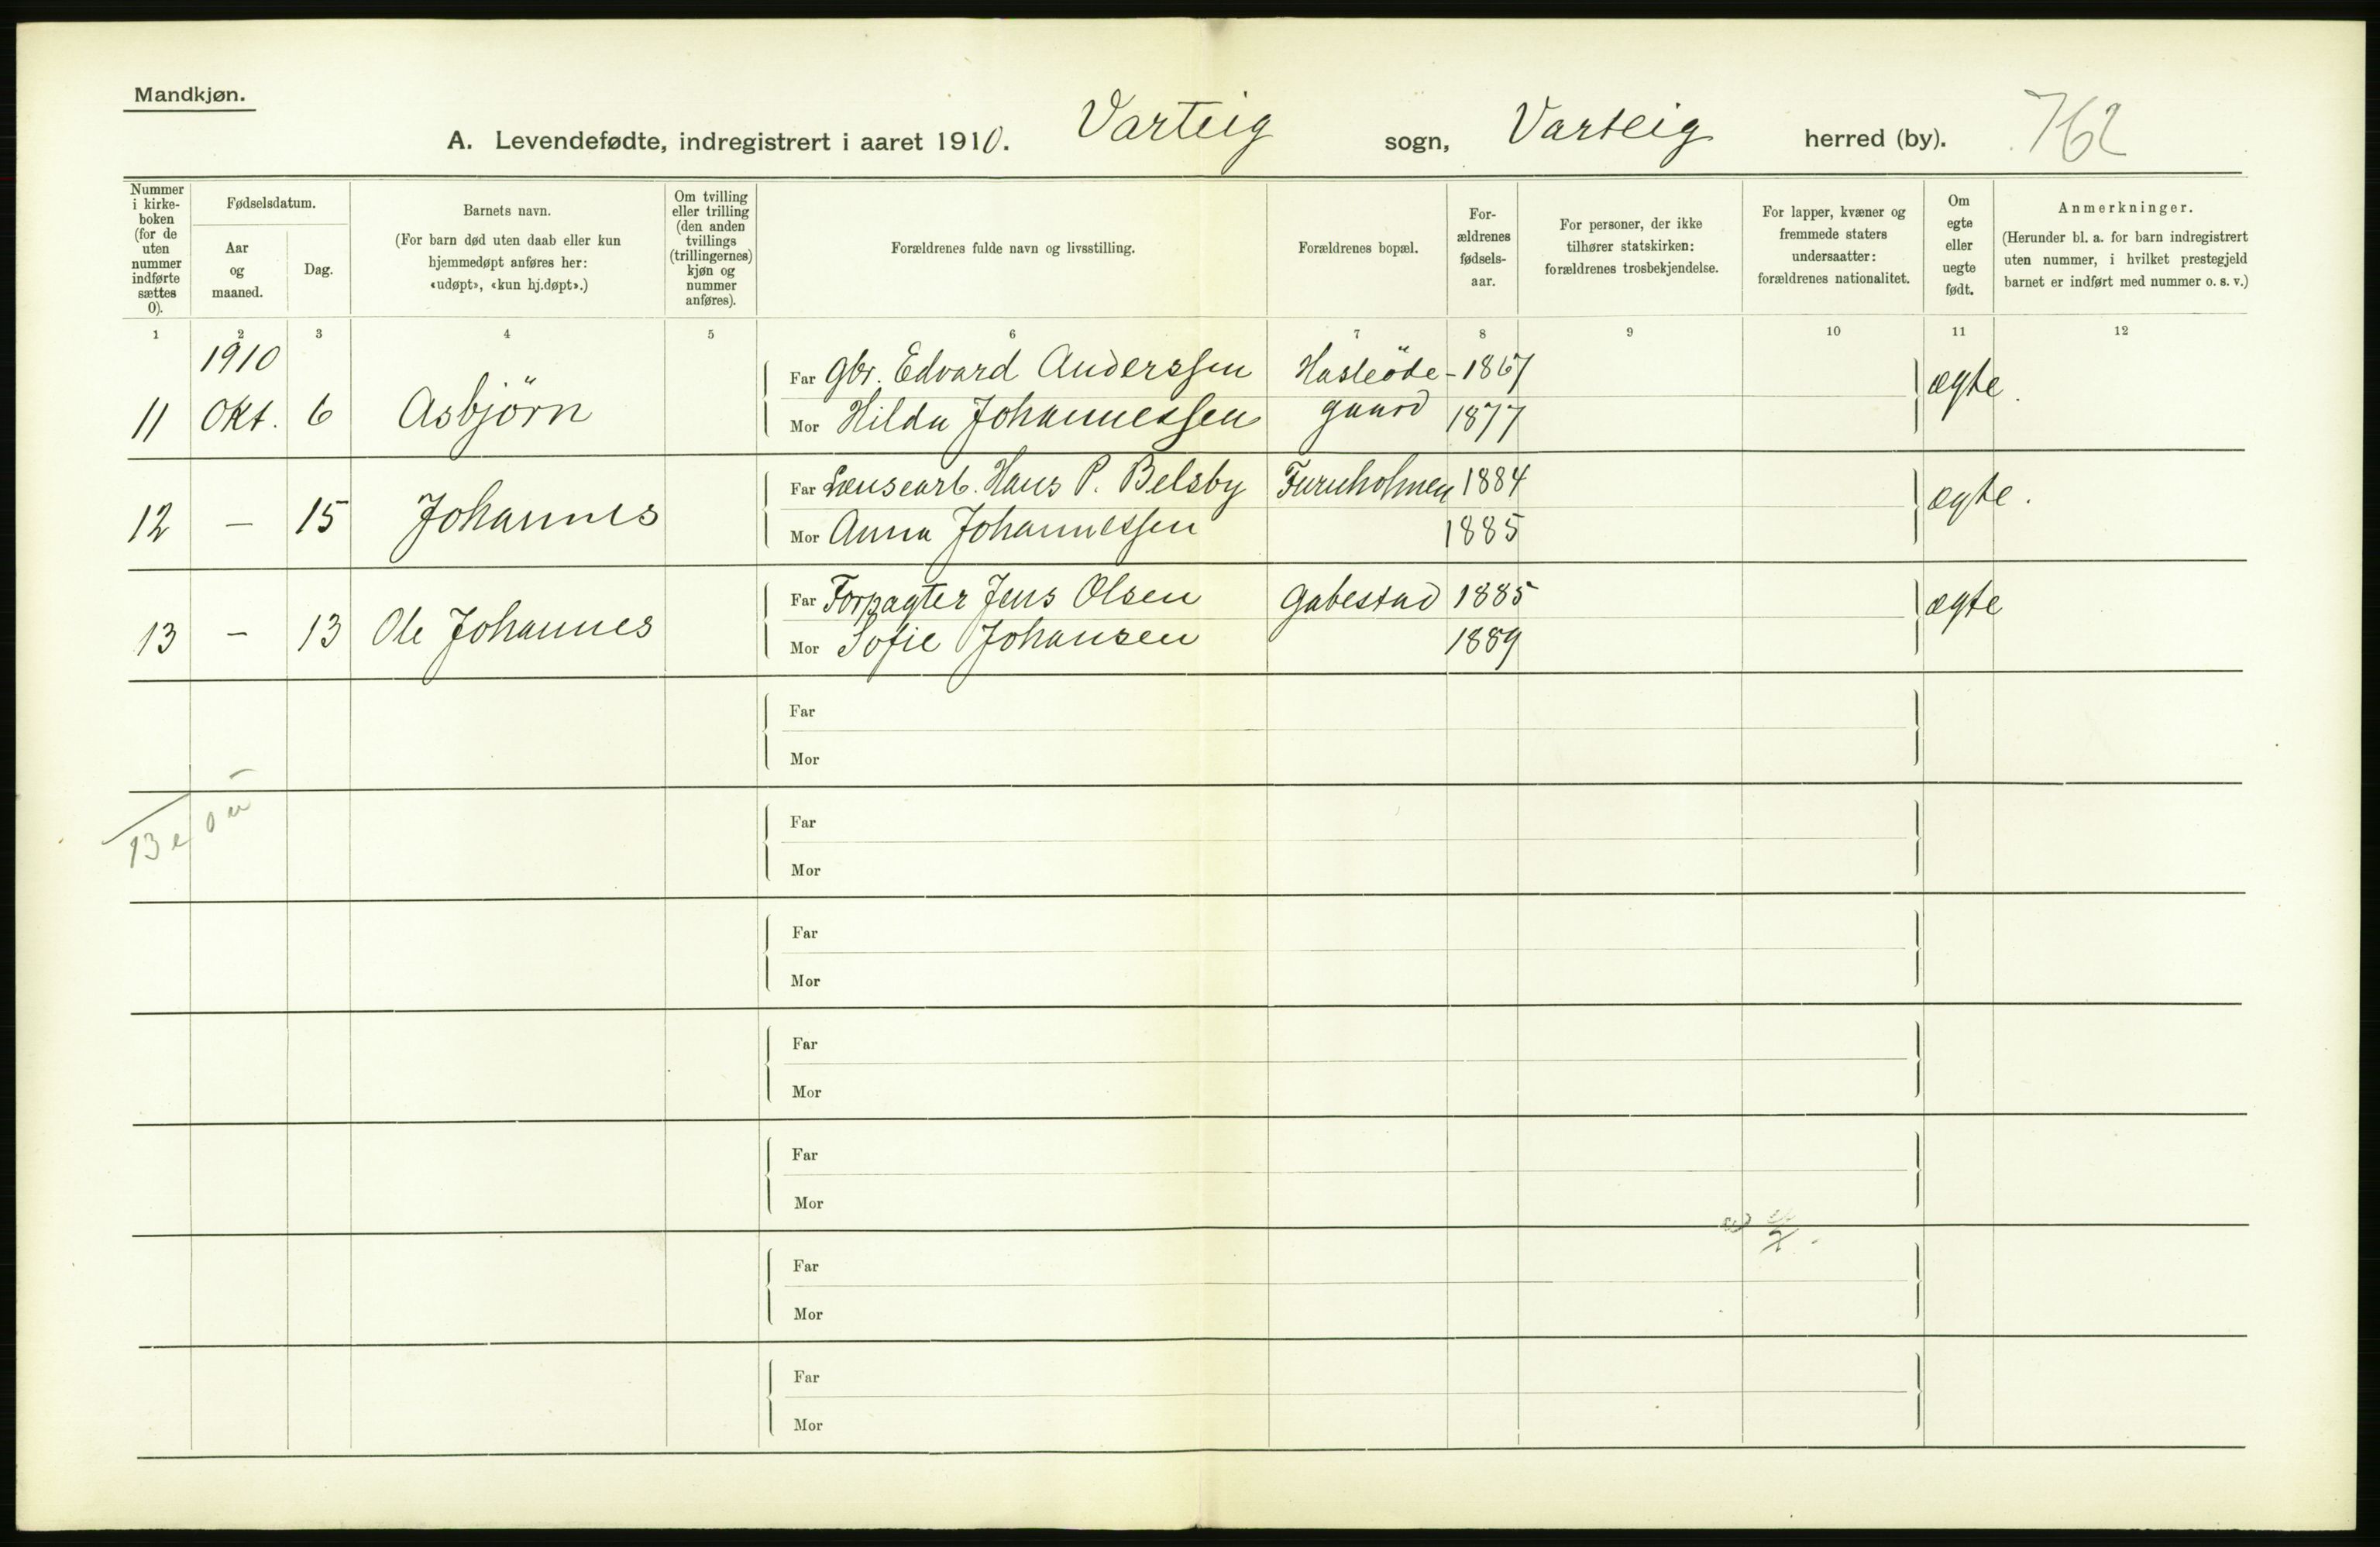 Mandkjøn.
A. Levendefødte, indregistrert i aaret 1910. Varteig sogn, Varteig herred (by). 762
Nummer i kirke-boken (for de uten nummer indførte sættes 0).
Fødselsdatum.
Aar og maaned.
Dag.
Barnets navn.
(For barn død uten daab eller kun hjemmedøpt anføres her: «udøpt», «kun hj.døpt».)
Om tvilling eller trilling (den anden tvillings (trillingernes) kjøn og nummer anføres).
Forældrenes fulde navn og livsstilling.
Forældrenes bopæl.
For-ældrenes fødsels-aar.
For personer, der ikke tilhører statskirken: forældrenes trosbekjendelse.
For lapper, kvæner og fremmede staters undersaatter: forældrenes nationalitet.
Om egte eller uegte født.
Anmerkninger.
(Herunder bl. a. for barn indregistrert uten nummer, i hvilket prestegjeld barnet er indført med nummer o. s. v.)
1 2 3 4 5 6 7 8 9 10 11 12
1910
Far Gbr. Edvard Anderssen Hasleöde- 1867 ægte.
11 Okt. 6 Asbjörn Mor Hilda Johannessen gaard 1877
Far Lensearb. Hans P. Belsby Furuholmen 1884 ægte.
12 — 15 Johannes Mor Anna Johannessen 1885
Far Forpagter Jens Olsen Gabestad 1885 ægte
13 — 13 Ole Johannes Mor Sofie Johansen 1889
Far
Mor
13 e 0 u
Far
Mor
Far
Mor
Far
Mor
Far
Mor
Far
Mor
Far
Mor